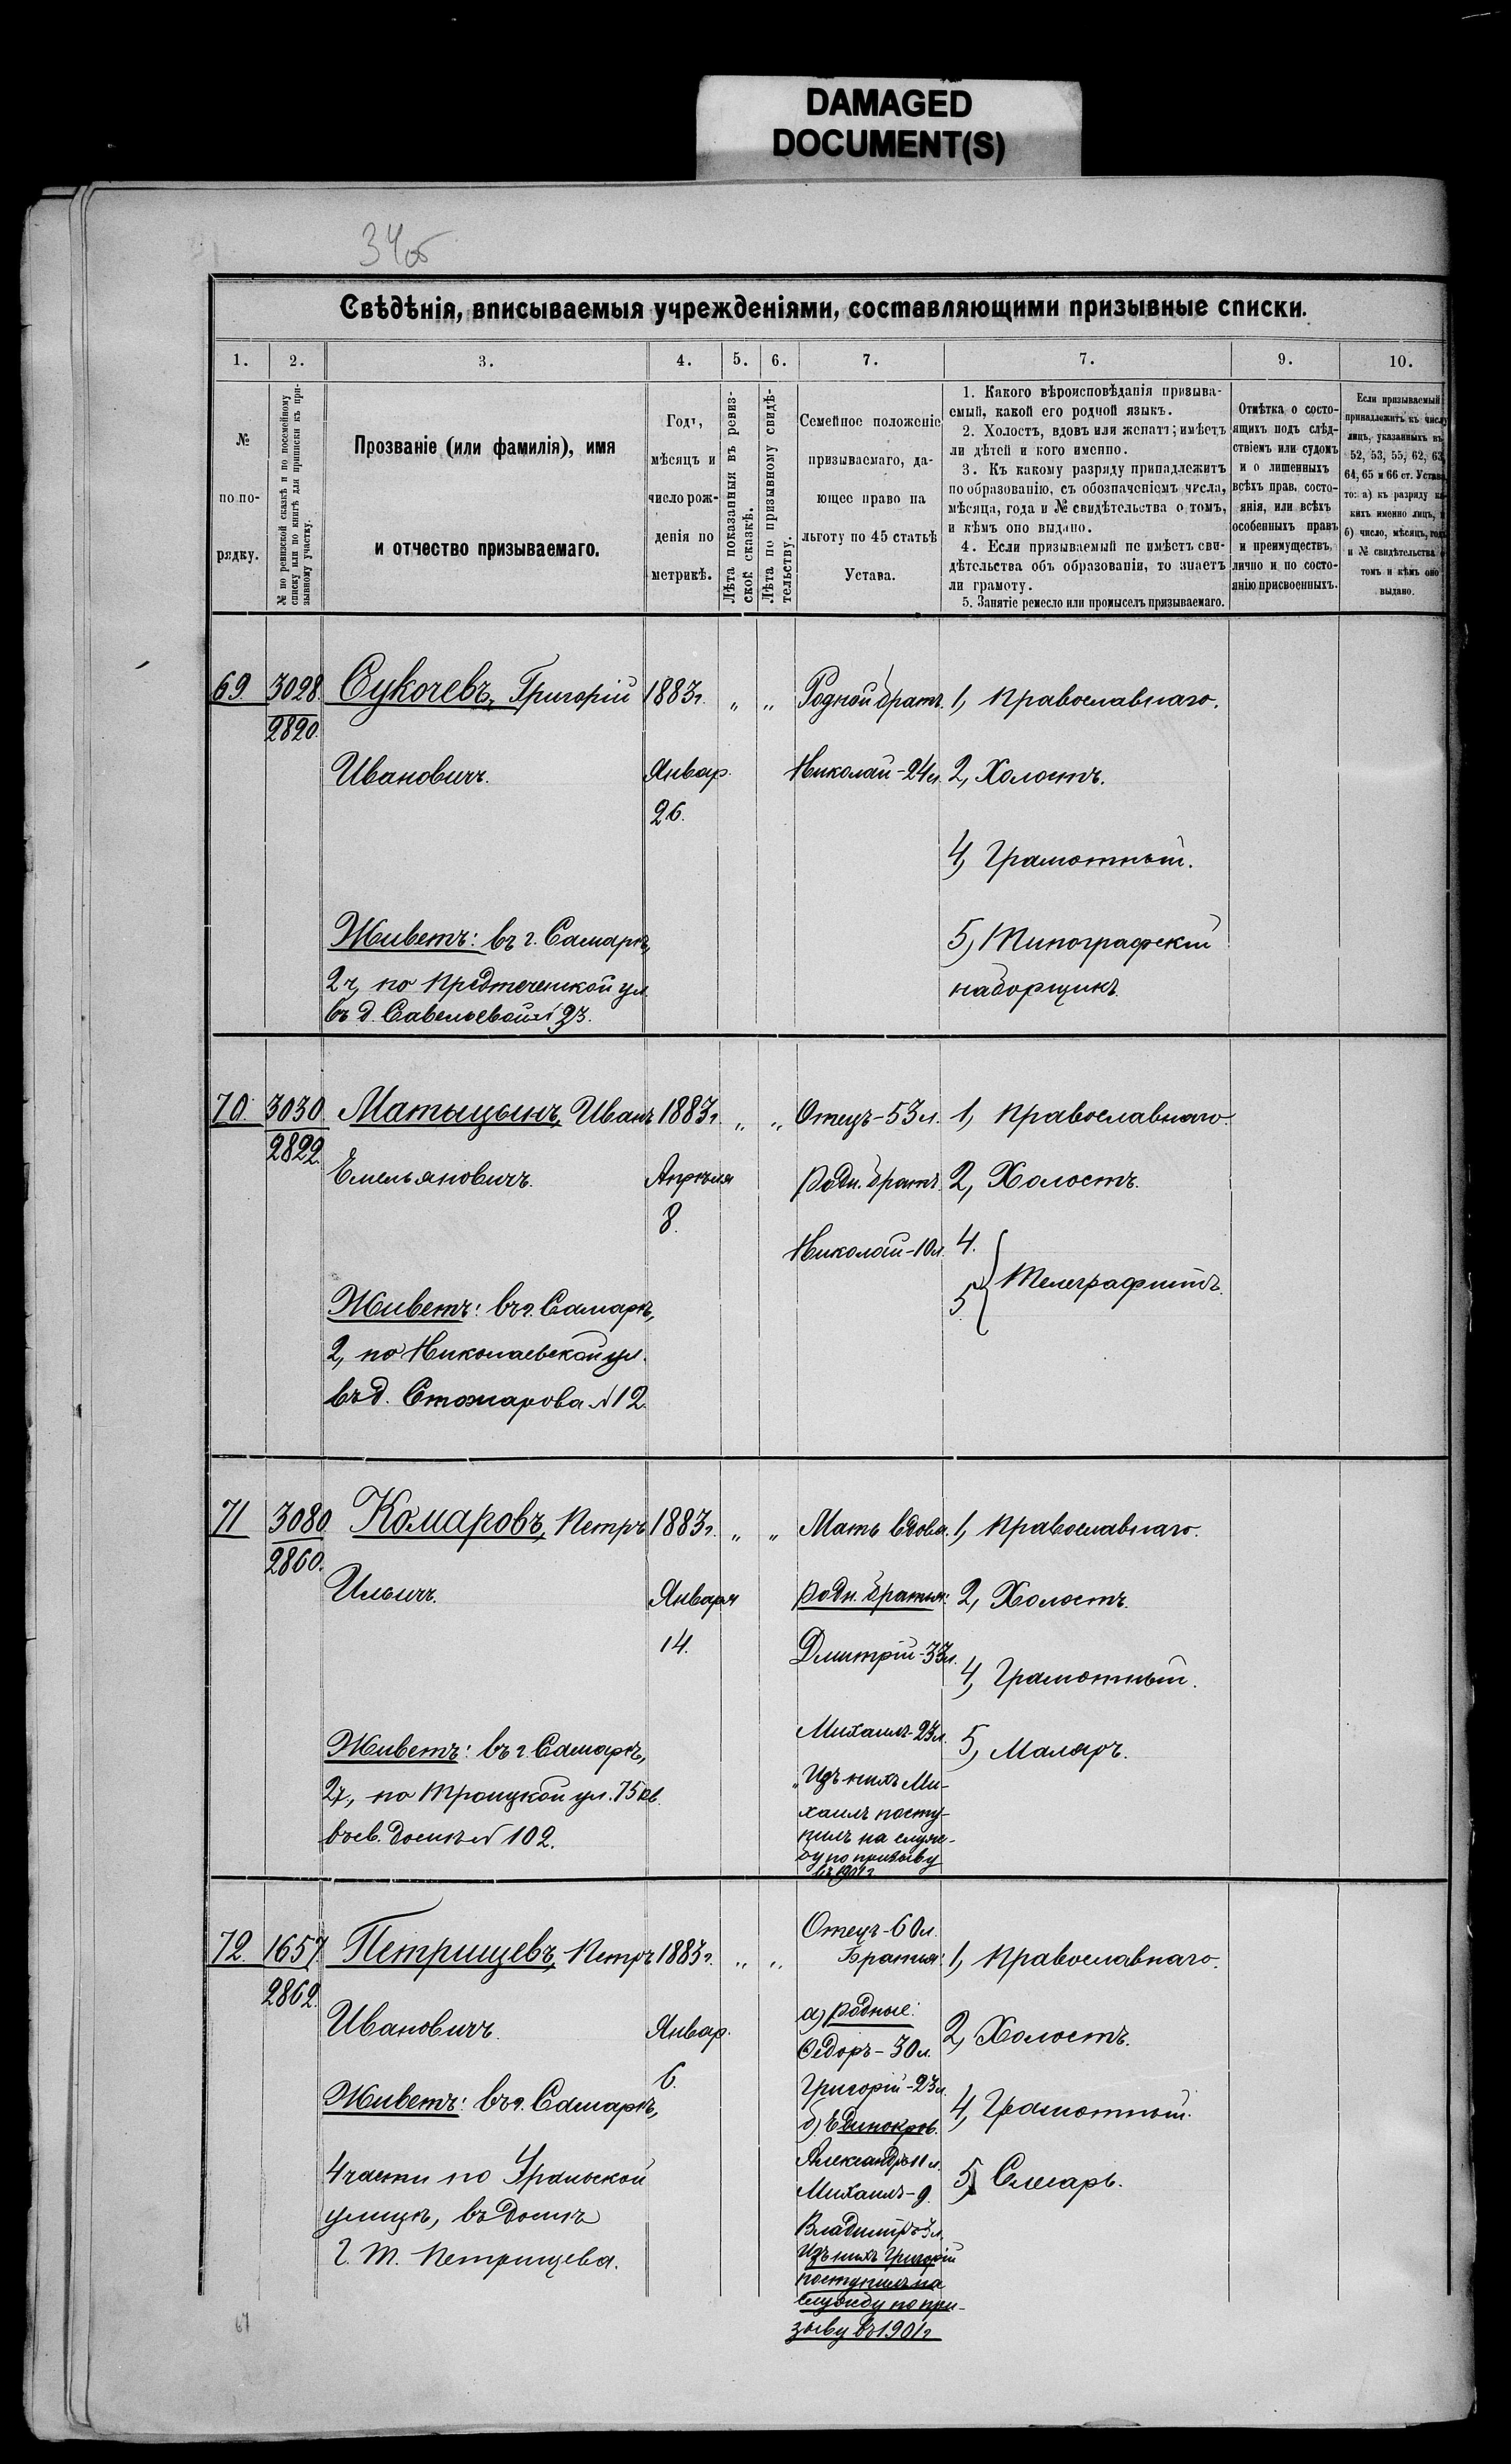 DAMAGED
DOCUMENT(S)
34об
Свѣдѣнія, вписываемыя учрежденіями, составляющими призывные списки.
1. 2. 3. 4. 5. 6. 7. 7. 9. 10.
№
по по-
рядку.
№ по ревизской сказкѣ и по посемейному
списку или по книгѣ для приписки къ при-
зывному участку.
Прозваніе (или фамилія), имя
и отчество призываемаго.
Годъ,
мѣсяцъ и
число рож-
денія по
метрикѣ.
Лѣта показанныя въ ревиз-
ской сказкѣ.
Лѣта по призывному свидѣ-
тельству.
Семейное положеніе
призываемаго, да-
ющее право на
льготу по 45 статьѣ
Устава.
1. Какого вѣроисповѣданія призыва-
емый, какой его родной языкъ.
2. Холостъ, вдовъ или женатъ; имѣетъ
ли дѣтей и кого именно.
3. Къ какому разряду принадлежитъ
по образованію, съ обозначеніемъ числа,
мѣсяца, года и № свидѣтельства о томъ,
и кѣмъ оно выдано.
4. Если призываемый не имѣетъ сви-
дѣтельства объ образованіи, то знаетъ
ли грамоту.
5. Занятіе ремесло или промыселъ призываемаго.
Отмѣтка о состо-
ящихъ подъ слѣд-
ствіемъ или судомъ
и о лишенныхъ
всѣхъ прав. состо-
янія, или всѣхъ
особенныхъ правъ
и преимуществъ,
лично и по состо-
янію присвоенныхъ.
Если призываемый
принадлежитъ къ числу
лицъ, указанныхъ въ
52, 53, 55, 62, 63,
64, 65 и 66 ст. Устава
то: а) къ разряду ка-
кихъ именно лицъ, и
б) число, мѣсяцъ, годъ
и № свидѣтельства о
томъ и кѣмъ оно
выдано.
69. 3028. Сукочевъ, Григорій 1883г. „ „ Родной братъ. 1, Православнаго.
2820.
Ивановичъ. Январ. Николай-24л. 2, Холостъ.
26.
4, Грамотный.
Живетъ: въ г. Самарѣ, 5, Типографскій
2ч, по Предтеченской ул. наборщикъ.
въ д. Савельевой № 23.
70. 3030. Матыцынъ, Иванъ 1883г. „ „ Отецъ-53л. 1, Православнаго.
2822.
Емельяновичъ. Апрѣля Родн. братъ. 2, Холостъ.
8.
Николай-10л. 4.
5 Телеграфистъ.
Живетъ: въ г. Самарѣ,
2, по Николаевской ул.
въ д. Стожарова № 12.
71 3080 Комаровъ, Петръ 1883г. „ „ Мать вдова. 1, Православнаго.
2860.
Ильичъ. Января Родн. братья: 2, Холостъ.
14. Дмитрій-33л. 4, Грамотный.
Михаилъ-23л. 5, Маляръ.
Живетъ: въ г. Самарѣ, „Изъ нихъ Ми-
2ч, по Троицкой ул. 75 кв. хаилъ посту-
въ св. домѣ № 102. пилъ на служ-
бу по призыву
въ 1901г
72. 1657. Петрищевъ, Петръ 1883г. „ „ Отецъ-60л.
Братья: 1, Православнаго.
2862.
Ивановичъ. Январ. а) родные:
6. Ѳедоръ-30л. 2, Холостъ.
Живетъ: въ г. Самарѣ, Григорій-23л. 4, Грамотный.
б) Единокров.
4 части по Уральской Александръ 11л.
5, Слесарь.
улицѣ, въ домѣ Михаилъ-9.
Г. Т. Петрищева. Владиміръ 3л.
Изъ нихъ Григорій
поступилъ на
службу по при-
зыву въ 1901г
61